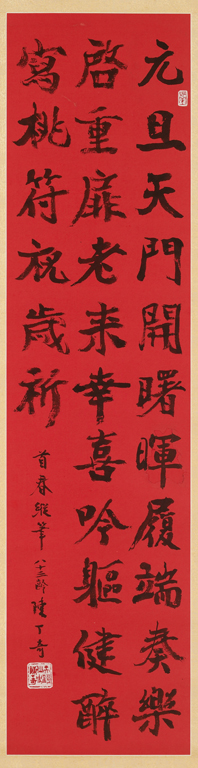 元旦天門開曙暉履端奏樂
啓重扉老來幸喜吟軀健醉
寫桃符祝歲祈
首春縱筆 八十三齡陳丁奇